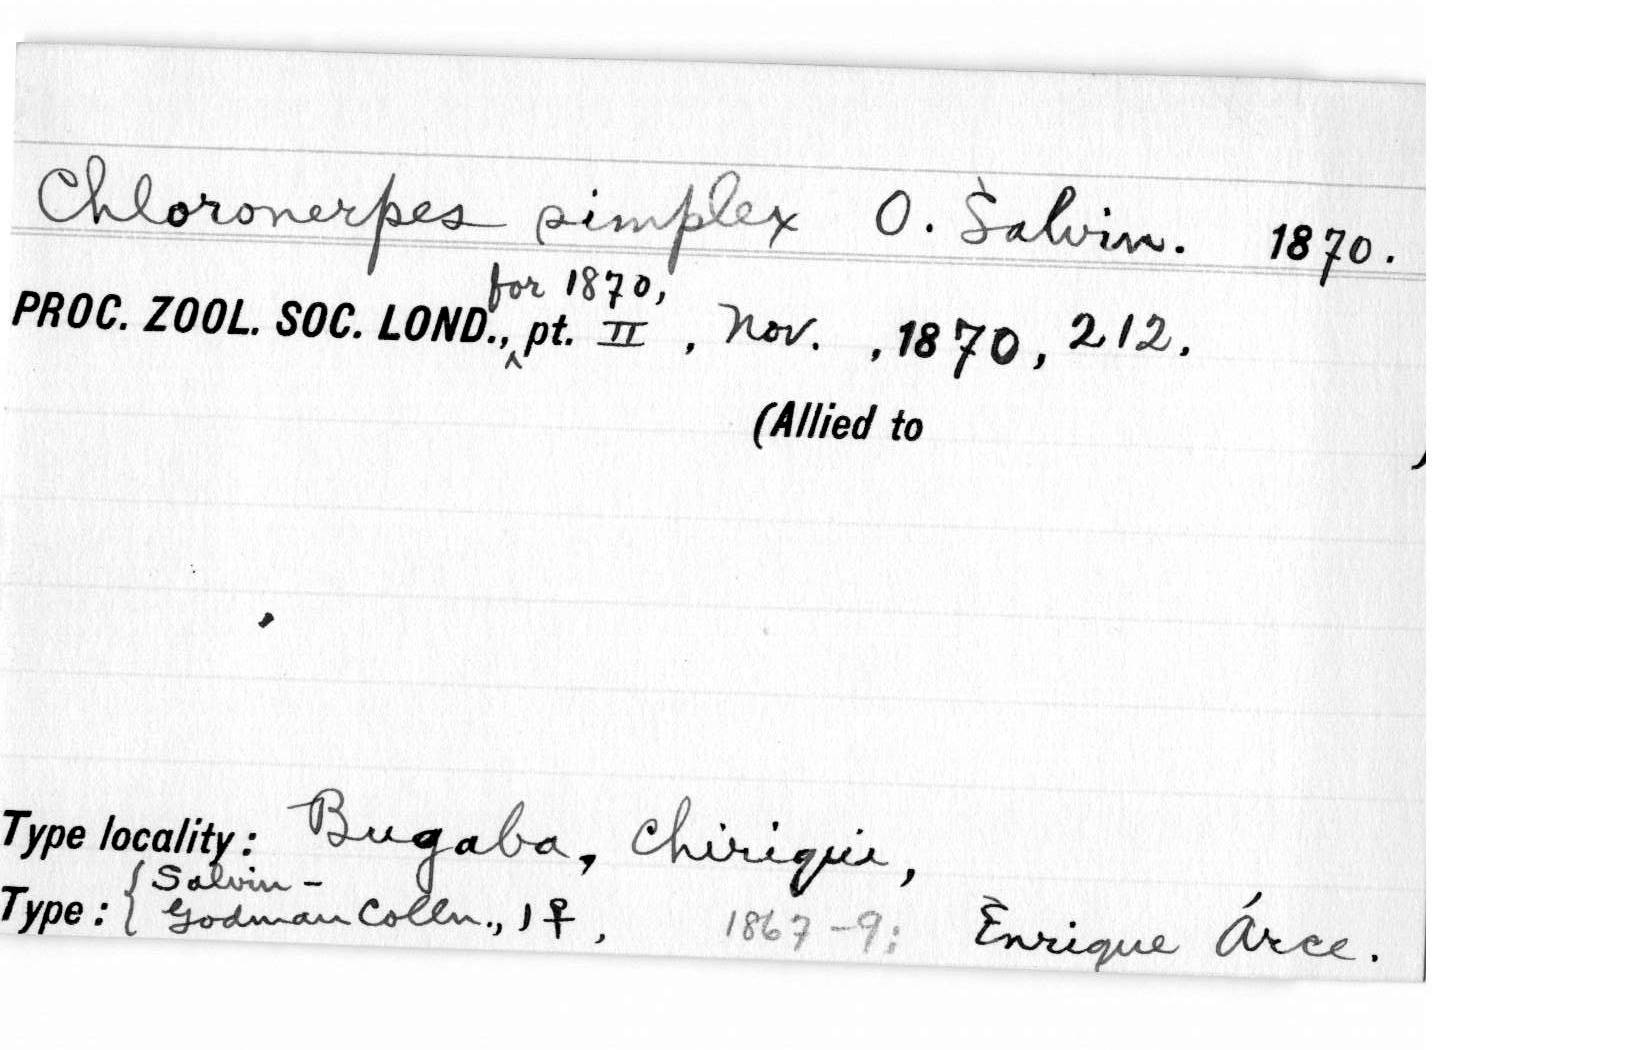 Chloronerpes simplex O. Salvin. 1870.
for 1870,
PROC. ZOOL. SOC. LOND., ^ pt. II, Nov. , 1870, 212.
(Allied to )
Type locality: Bugaba, Chiriqui,
Type: { Salvin-
Godman Colln., ♀, 1867-9; Enrique Árce.